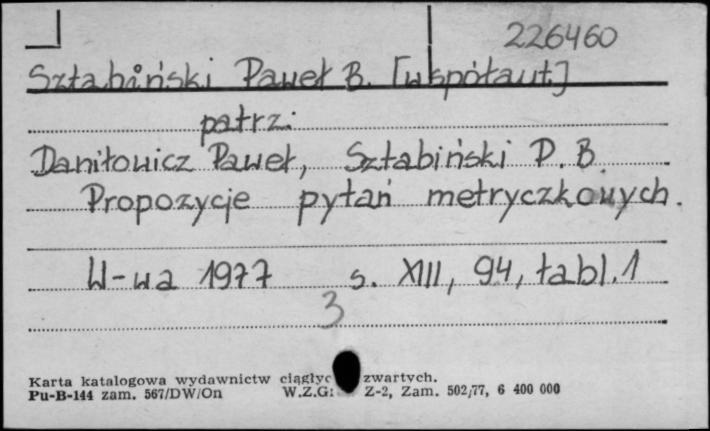 226460
Sztabiński Paweł B. [współaut]
patrz:
Daniłowicz Paweł, Sztabiński P. B.
Propozycje pytań metryczkowych.
W-wa 1977 s. XIII, 94, tabl. 1
3
Karta katalogowa wydawnictw ciągłyc zwartych.
Pu-B-144 zam. 567/DW/On W.Z.G: Z-2, Zam. 502/77, 6 400 000